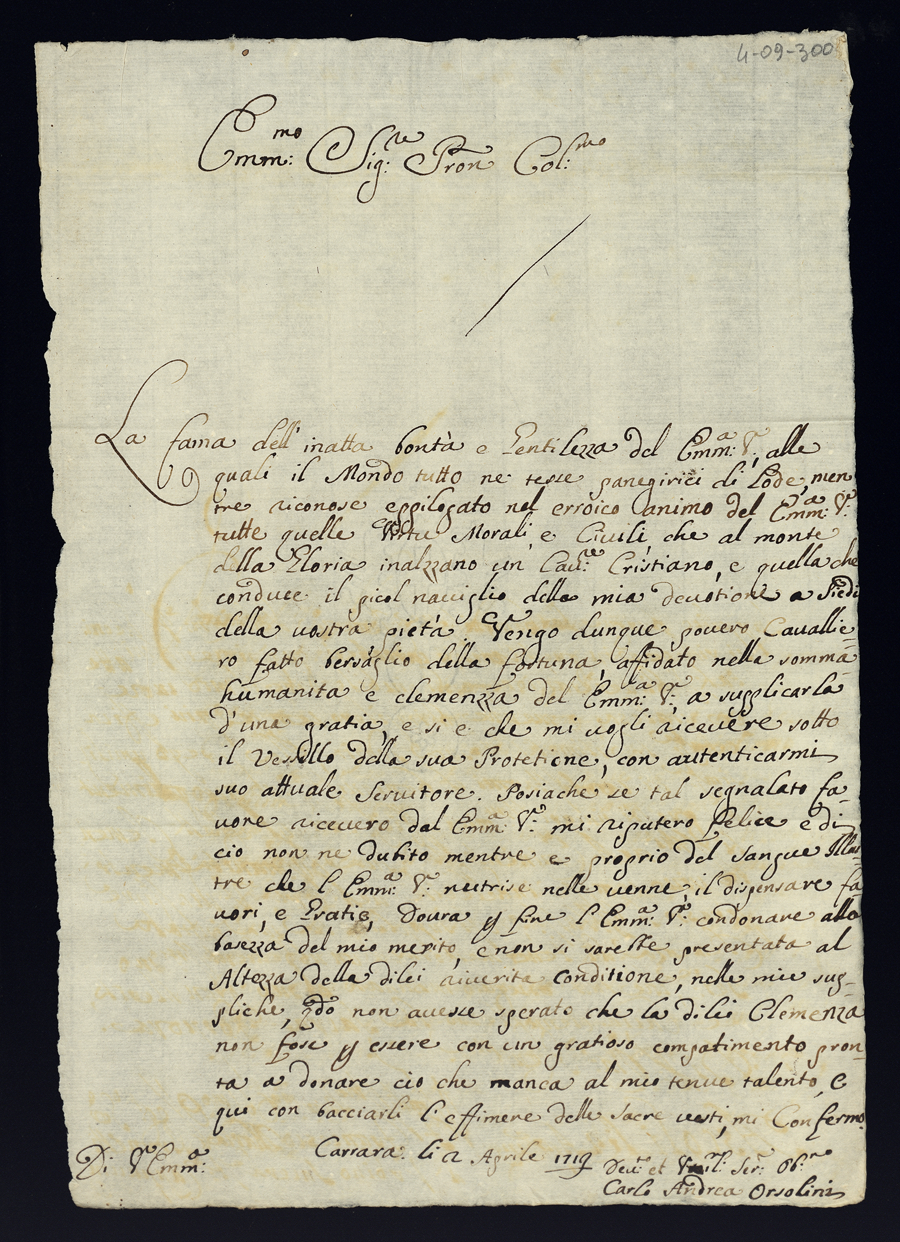 4-09-300
Emm:mo Sig:re Pron Col:mo
La fama dell' inatta bontà e Gentilezza del Emm:a V:, alle
quali il Mondo tutto ne tesse panegirici di Lode, men
tre riconose eppilogato nel erroico animo del Emm:a V:
tutte quelle Virtu Morali, e Civili che al monte
della Gloria inalzzano un Cau:re Cristiano, e quella che
conduce il picol naviglio della mia devotione a Piedi
della vostra pietà. Vengo dunque povero Cavallie-
ro fatto bersaglio della fortuna, affidato nella somma
humanita e clemenzza del Emm:a V:a, a supplicarla
d'una gratia, e si e che mi vogli ricevere sotto
il Vessillo della sua Protetione, con autenticarmi
suo attuale Servitore. Posiache se tal segnalato fa-
vore ricevero dal Emm:a V:a mi riputero felice e di
cio non ne dubito mentre e proprio del sangue Illus-
tre che l'Emm:a V:a nutrise nelle venne, il dispensare fa
vori, e Gratie, Dovra p fine l'Emm:a V:a condonare alla
basezza del mio merito, e non si sarebbe presentata al
Altezza della dilei riverita conditione, nelle mie sup-
pliche, qdo non avesse sperato che la dilei Clemenza
non fose p essere con un gratioso compatimento pron-
ta a donare cio che manca al mio tenue talento, e
qui con bacciarli l'effimere delle sacre vesti, mi Confermo
Di V:a Emm:a
Carrara: li 2 Aprile 1719
Deu:o et Vmil: Ser:e Ob:mo
Carlo Andrea Orsolini